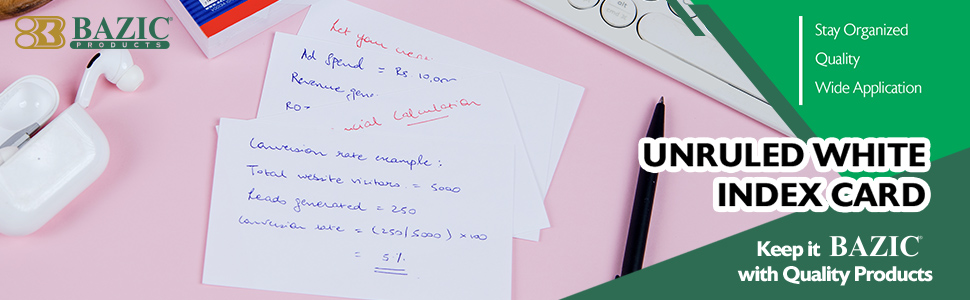 BAZIC
PRODUCTS
Let your
Ad Spend = Rs 10,000
Revenue gene
RO
cial Calculation
Conversion rate example:
Total website visitors = 5000
Leads generated = 250
Conversion rate = (250/5000) × 100
= 5%
Stay Organized
Quality
Wide Application
UNRULED WHITE
INDEX CARD
Keep it BAZIC
with Quality Products